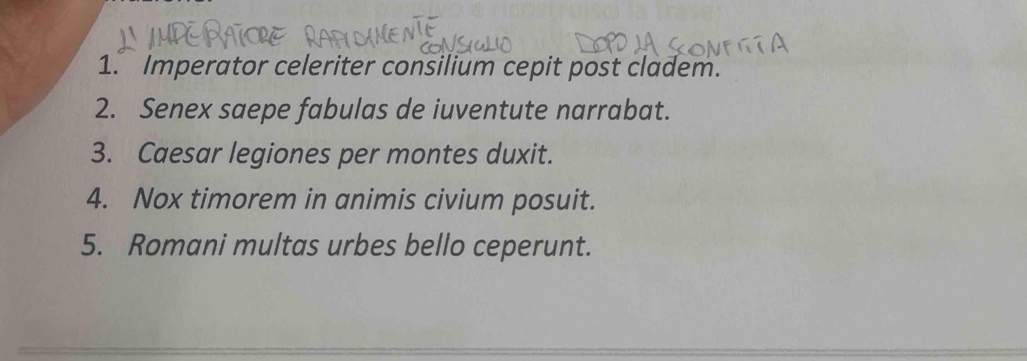 L'IMPERATORE RAPIDAMENTE CONSIGLIO DOPO LA SCONFITTA
1. Imperator celeriter consilium cepit post cladem.
2. Senex saepe fabulas de iuventute narrabat.
3. Caesar legiones per montes duxit.
4. Nox timorem in animis civium posuit.
5. Romani multas urbes bello ceperunt.